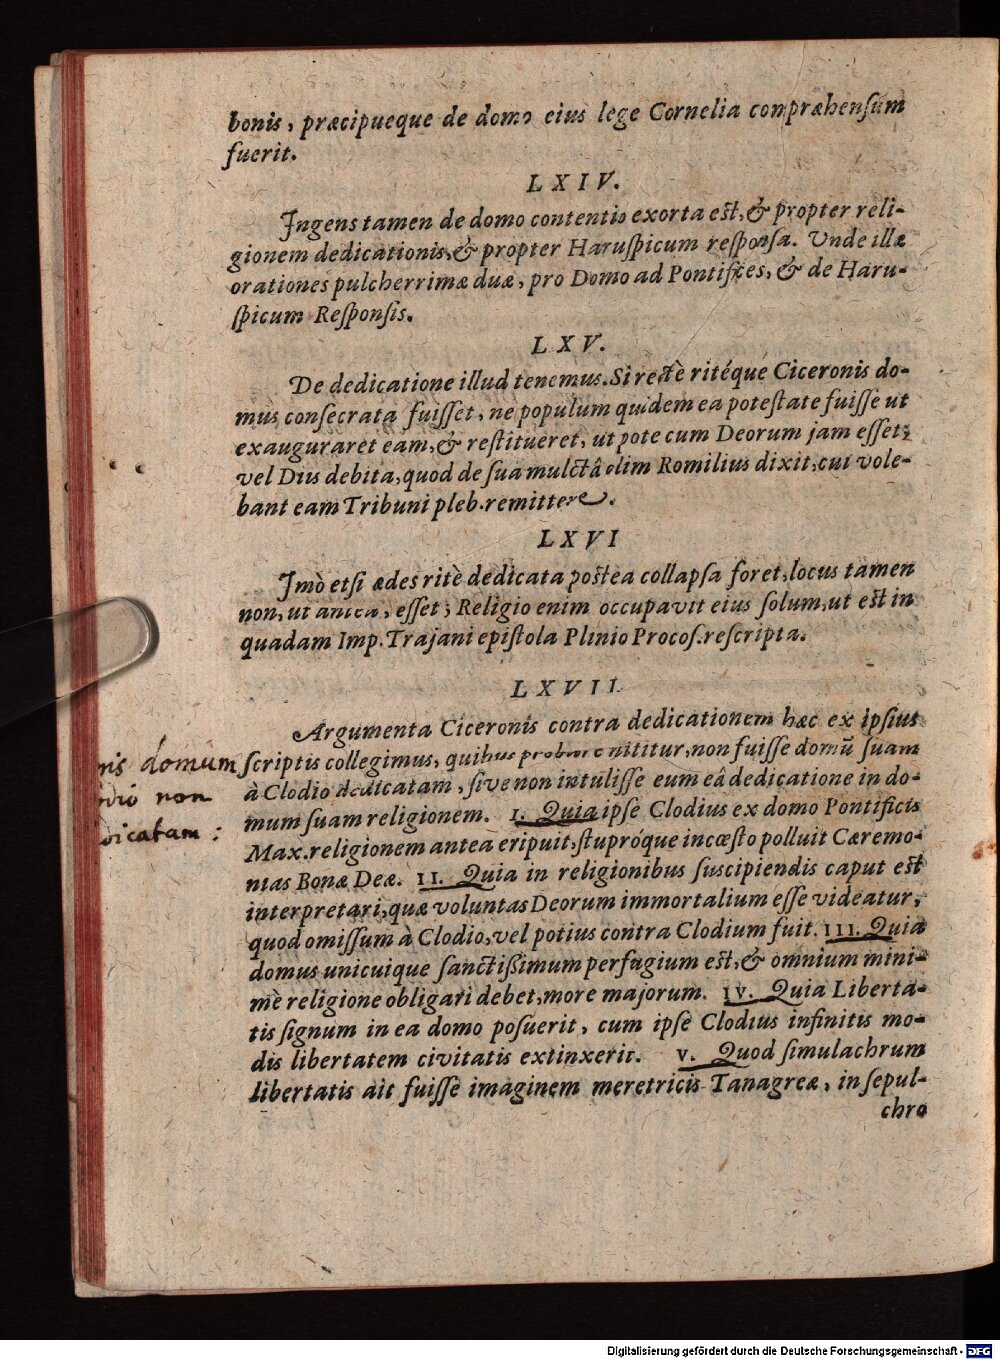 bonis, præcipueque de domo eius lege Cornelia conpræhensum
fuerit.
LXIV.
Ingens tamen de domo contentio exorta est, & propter reli-
gionem dedicationis, & propter Haruspicum responsa. Unde illæ
orationes pulcherrimæ duæ, pro Domo ad Pontifices, & de Haru-
spicum Responsis.
LXV.
De dedicatione illud tenemus. Si rectè ritéque Ciceronis do-
mus consecrata fuisset, ne populum quidem ea potestate fuisse ut
exauguraret eam, & restitueret, ut pote cum Deorum jam esset;
vel Diis debita, quod de sua mulctâ olim Romilius dixit, cui vole-
bant eam Tribuni pleb. remittere.
LXVI
Imò etsi ædes ritè dedicata postea collapsa foret, locus tamen
non, ut antea, esset; Religio enim occupavit eius solum, ut est in
quadam Imp. Trajani epistola Plinio Procos. rescripta.
LXVII.
Argumenta Ciceronis contra dedicationem hæc ex ipsius
scriptis collegimus, quibus probare nititur, non fuisse domũ suam
à Clodio dedicatam, sive non intulisse eum eâ dedicatione in do-
mum suam religionem. I. Quia ipse Clodius ex domo Pontificis
Max. religionem antea eripuit, stupróque incœsto polluit Cæremo-
nias Bonæ Deæ. II. Quia in religionibus suscipiendis caput est
interpretari, quæ voluntas Deorum immortalium esse videatur,
quod omissum à Clodio, vel potius contra Clodium fuit. III. Quia
domus unicuique sanctißimum perfugium est, & omnium mini-
mè religione obligari debet, more majorum. IV. Quia Liberta-
tis signum in ea domo posuerit, cum ipse Clodius infinitis mo-
dis libertatem civitatis extinxerit. V. Quod simulachrum
libertatis ait fuisse imaginem meretricis Tanagreæ, in sepul-
chro
nis domum
dio non
dicatam:
Digitalisierung gefördert durch die Deutsche Forschungsgemeinschaft - DFG